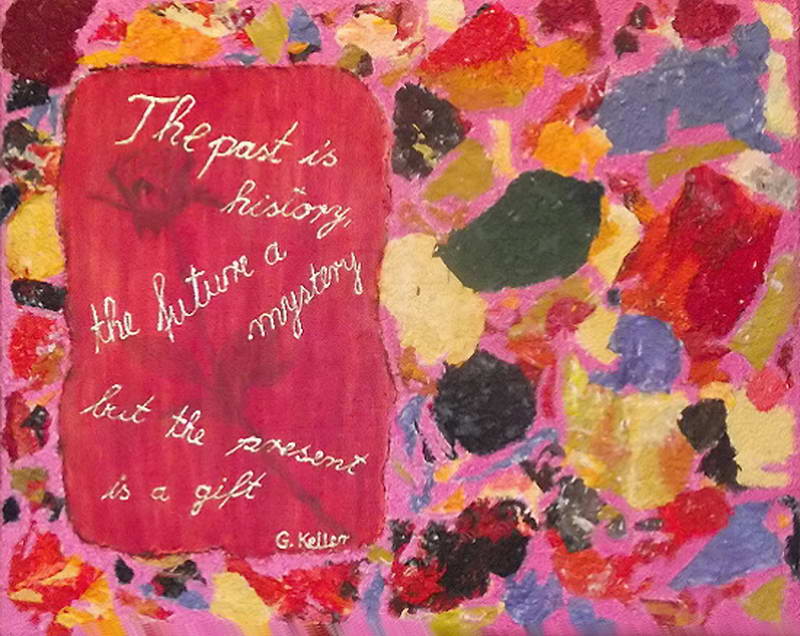 The past is
history,
the future a
mystery
but the present
is a gift
G. Keller